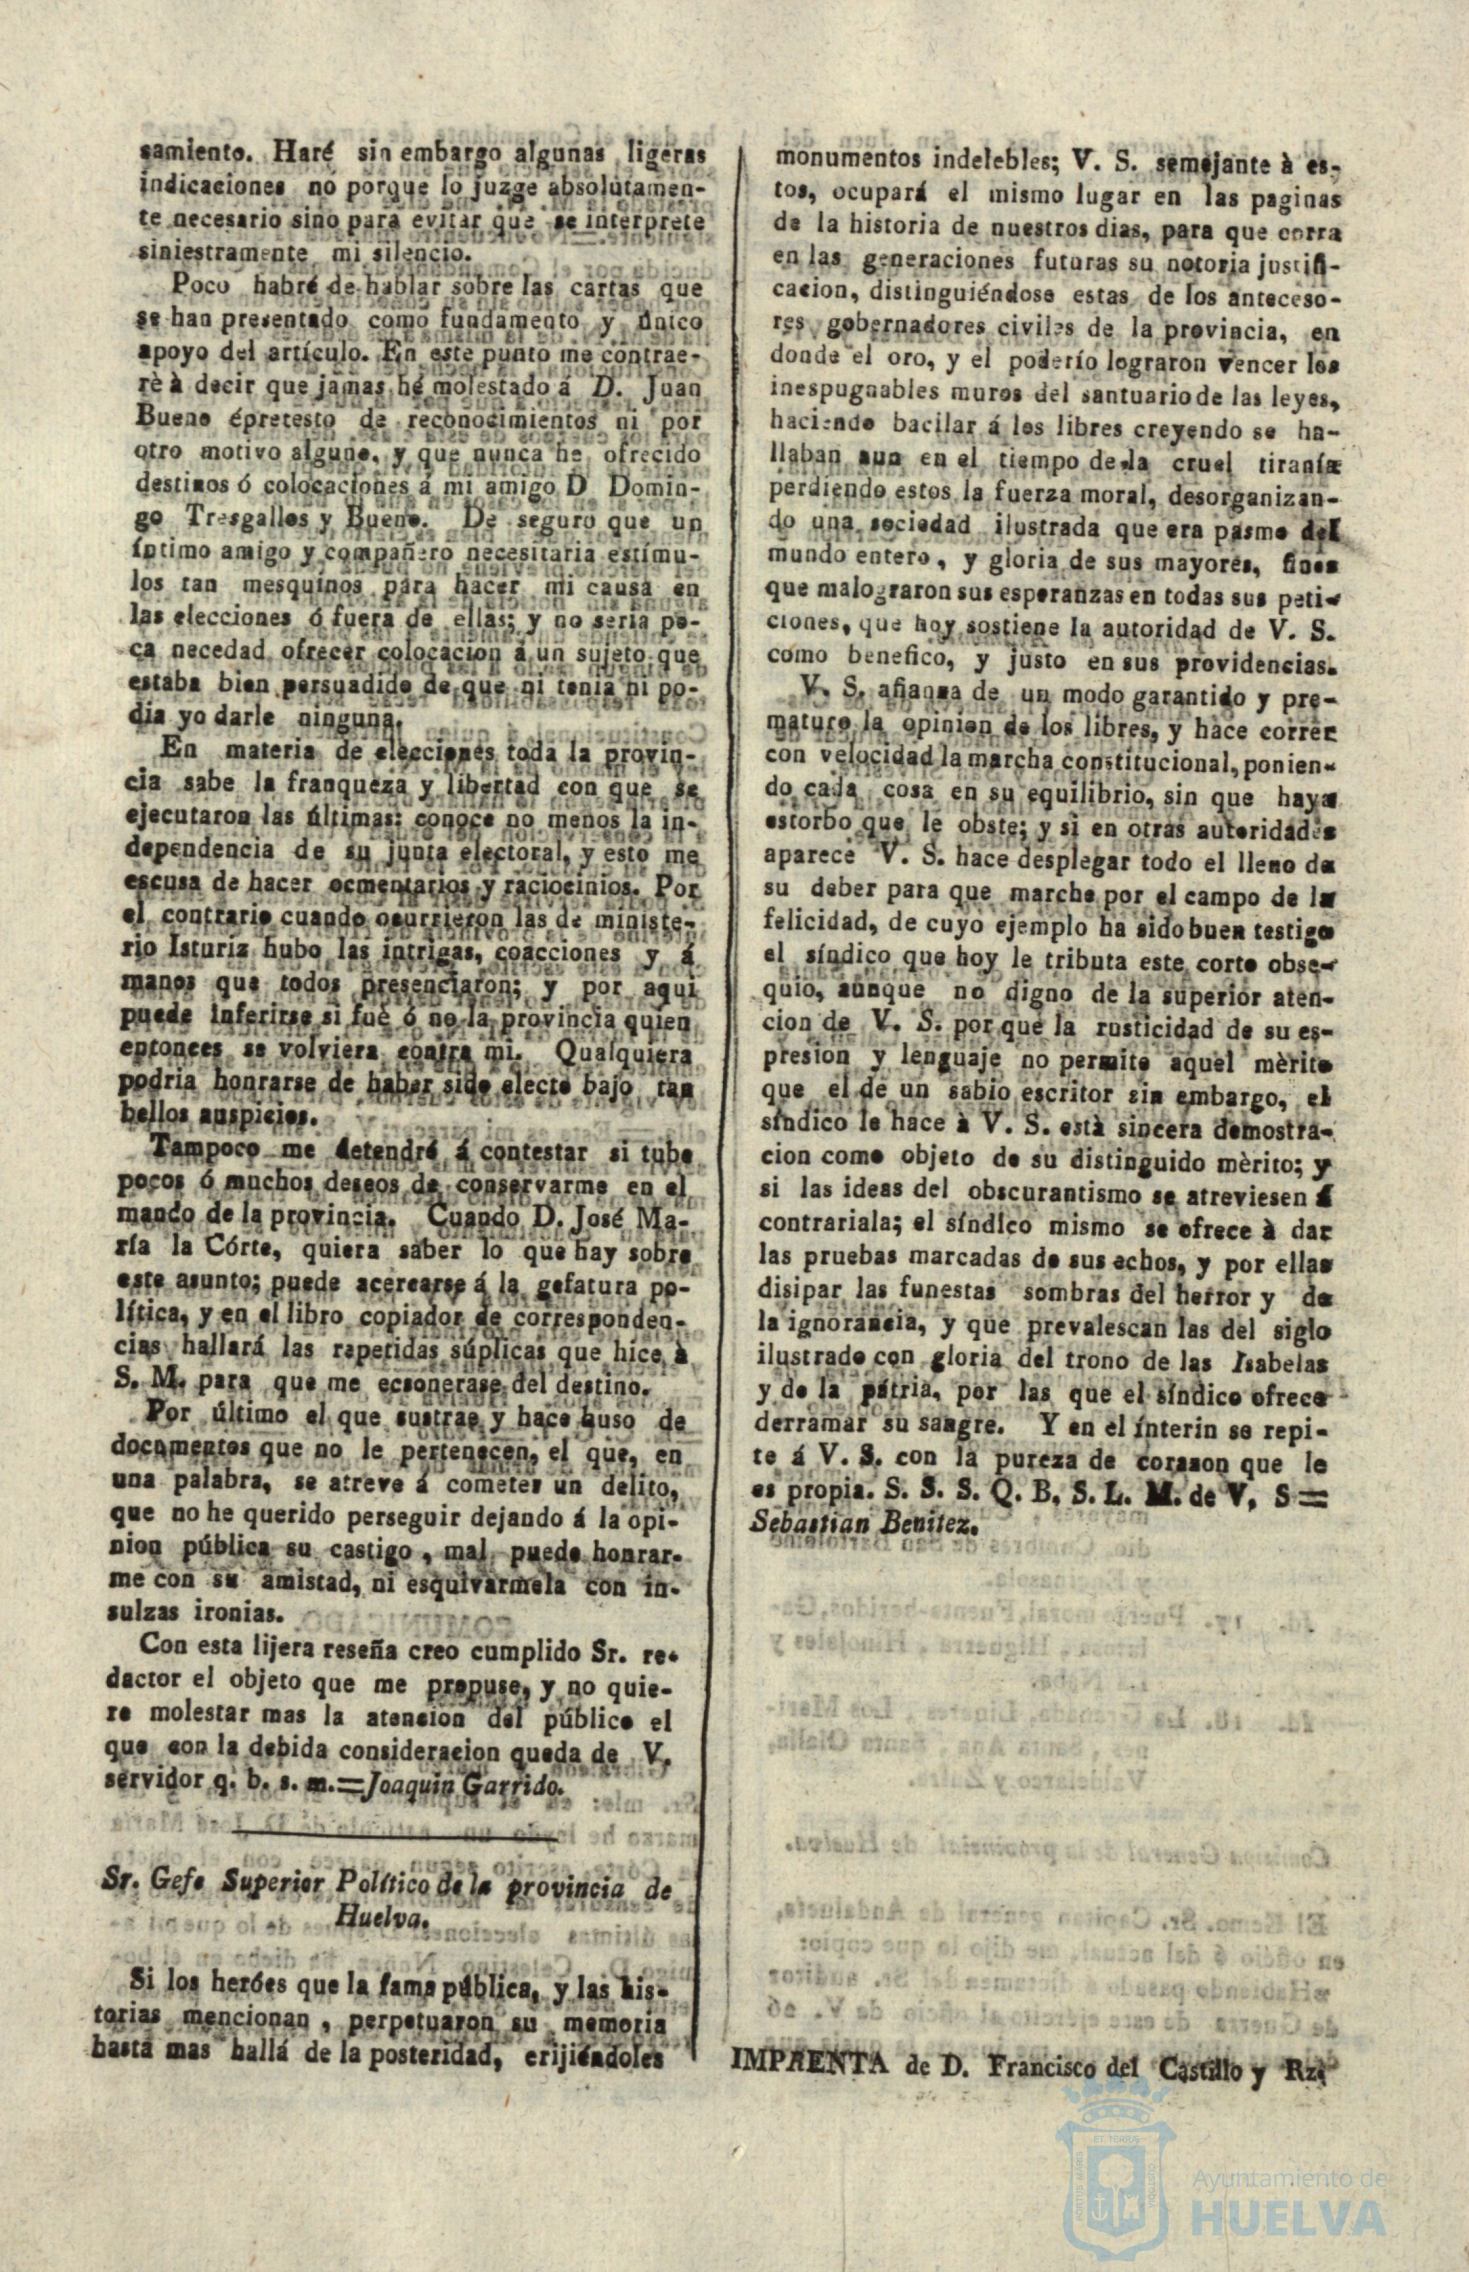 samiento. Haré sin embargo algunas ligeras
indicaciones no porque lo juzge absolutamen-
te necesario sino para evitar que se interprete
siniestramente mi silencio.
Poco habré de hablar sobre las cartas que
se han presentado como fundamento y único
apoyo del artículo. En este punto me contrae-
rè à decir que jamas hé molestado á D. Juan
Bueno épretesto de reconocimientos ni por
otro motivo alguno. y que nunca he ofrecido
destinos ó colocaciones á mi amigo D Domin-
go Tresgallos y Bueno. De seguro que un
íntimo amigo y compañero necesitaria estímu-
los tan mesquinos para hacer mi causa en
las elecciones ó fuera de ellas; y no seria po-
ca necedad ofrecer colocacion á un sujeto que
estaba bien persuadido de que ni tenia ni po-
dia yo darle ninguna.
En materia de elecciones toda la provin-
cia sabe la franqueza y libertad con que se
ejecutaron las últimas: conoce no menos la in-
dependencia de su junta electoral, y esto me
escusa de hacer ocmentarios y raciocinios. Por
el contrario cuando ocurrieron las de ministe-
rio Isturiz hubo las intrigas, coacciones y á
manos que todos presenciaron; y por aqui
puede inferirse si fuè ó no la provincia quien
entonces se volviera contra mi. Qualquiera
podria honrarse de haber sido electo bajo tan
bellos auspicios.
Tampoco me detendré á contestar si tube
pocos ó muchos deseos de conservarme en el
mando de la provincia. Cuando D. José Ma-
ría la Córte, quiera saber lo que hay sobre
este asunto; puede acercarse á la gefatura po-
lítica, y en el libro copiador de corresponden-
cias hallará las repetidas súplicas que hice à
S. M. para que me ecsonerase del destino.
Por último el que sustrae y hace huso de
documentos que no le pertenecen, el que, en
una palabra, se atreve á cometer un delito,
que no he querido perseguir dejando á la opi-
nion pública su castigo, mal puede honrar-
me con su amistad, ni esquivarmela con in-
sulzas ironias.
Con esta lijera reseña creo cumplido Sr. re-
dactor el objeto que me propuse, y no quie-
re molestar mas la atencion del público el
que con la debida consideracion queda de V.
servidor q. b. s. m.=Joaquin Garrido.
Sr. Gefe Superior Político de la provincia de
Huelva.
Si los heróes que la fama pública, y las his-
torias mencionan, perpetuaron su memoria
hasta mas hallá de la posteridad, erijiéndoles
monumentos indelebles; V. S. semejante à es-
tos, ocupará el mismo lugar en las paginas
de la historia de nuestros dias, para que corra
en las generaciones futuras su notoria justifi-
cacion, distinguiéndose estas de los anteceso-
res gobernadores civiles de la provincia, en
donde el oro, y el poderío lograron vencer los
inespugnables muros del santuario de las leyes,
haciendo bacilar á los libres creyendo se ha-
llaban aun en el tiempo de la cruel tiranía
perdiendo estos la fuerza moral, desorganizan-
do una sociedad ilustrada que era pasmo del
mundo entero, y gloria de sus mayores, fines
que malograron sus esperanzas en todas sus peti-
ciones, que hoy sostiene la autoridad de V. S.
como benefico, y justo en sus providencias.
V. S. afianza de un modo garantido y pre-
maturo la opinion de los libres, y hace correr
con velocidad la marcha constitucional, ponien-
do cada cosa en su equilibrio, sin que haya
estorbo que le obste; y si en otras autoridades
aparece V. S. hace desplegar todo el lleno de
su deber para que marche por el campo de la
felicidad, de cuyo ejemplo ha sido buen testigo
el síndico que hoy le tributa este corto obse-
quio, aunque no digno de la superior aten-
cion de V. S. por que la rusticidad de su es-
presion y lenguaje no permite aquel mèrito
que el de un sabio escritor sin embargo, el
síndico le hace à V. S. està sincera demostra-
cion como objeto de su distinguido mèrito; y
si las ideas del obscurantismo se atreviesen á
contrariala; el síndico mismo se ofrece à dar
las pruebas marcadas de sus echos, y por ellas
disipar las funestas sombras del herror y de
la ignorancia, y que prevalescan las del siglo
ilustrado con gloria del trono de las Isabelas
y de la pátria, por las que el síndico ofrece
derramar su sangre. Y en el ínterin se repi-
te á V. S. con la pureza de corazon que le
es propia. S. S. S. Q. B. S. L. M. de V. S=
Sebastian Benitez.
IMPRENTA de D. Francisco del Castillo y Rz.
Ayuntamiento de
HUELVA